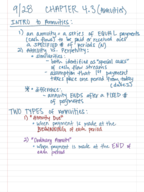 9/28 CHAPTER 4.3 (Annuities)
INTRO to Annuities:
1) an annuity = a series of EQUAL payments
(cash flows) to be paid or received over
a SPECIFIED # of periods (N)
2) Annuity vs. Perpetuity:
- similarities:
- both identified as "special cases"
of cash flow streams
- assumption that 1st payment
takes place one period from today
(date 1)
* difference:
- annuity ENDS after a FIXED #
of payments
TWO TYPES of annuities:
1) "Annuity Due"
- when payment is made at the
BEGINNING of each period
2) "Ordinary Annuity"
- when payment is made at the END of
each period